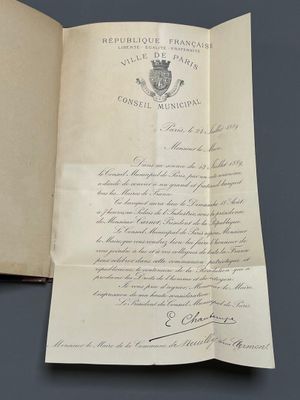 RÉPUBLIQUE FRANÇAISE
LIBERTÉ - ÉGALITÉ - FRATERNITÉ
VILLE DE PARIS
CONSEIL MUNICIPAL
Paris, le 24 Juillet 1889
Monsieur le Maire,
Dans sa séance du 12 Juillet 1889,
le Conseil Municipal de Paris par un vote unanime
a décidé de convier à un grand et fraternel banquet
tous les Maires de France.
Ce banquet aura lieu le Dimanche 18 Août
à heures au Palais de l'Industrie, sous la présidence
de Monsieur Carnot, Président de la République.
Le Conseil Municipal de Paris espère, Monsieur
le Maire, que vous voudrez bien lui faire l'honneur de
vous joindre à lui et à vos collègues de toute la France
pour célébrer dans cette communion patriotique et
républicaine le centenaire de la Révolution qui a
proclamé les Droits de l'homme et du citoyen.
Je vous prie d'agréer, Monsieur le Maire,
l'expression de ma haute considération.
Le Président du Conseil Municipal de Paris
E Chautemps
Monsieur le Maire de la Commune de Neuilly sous Clermont